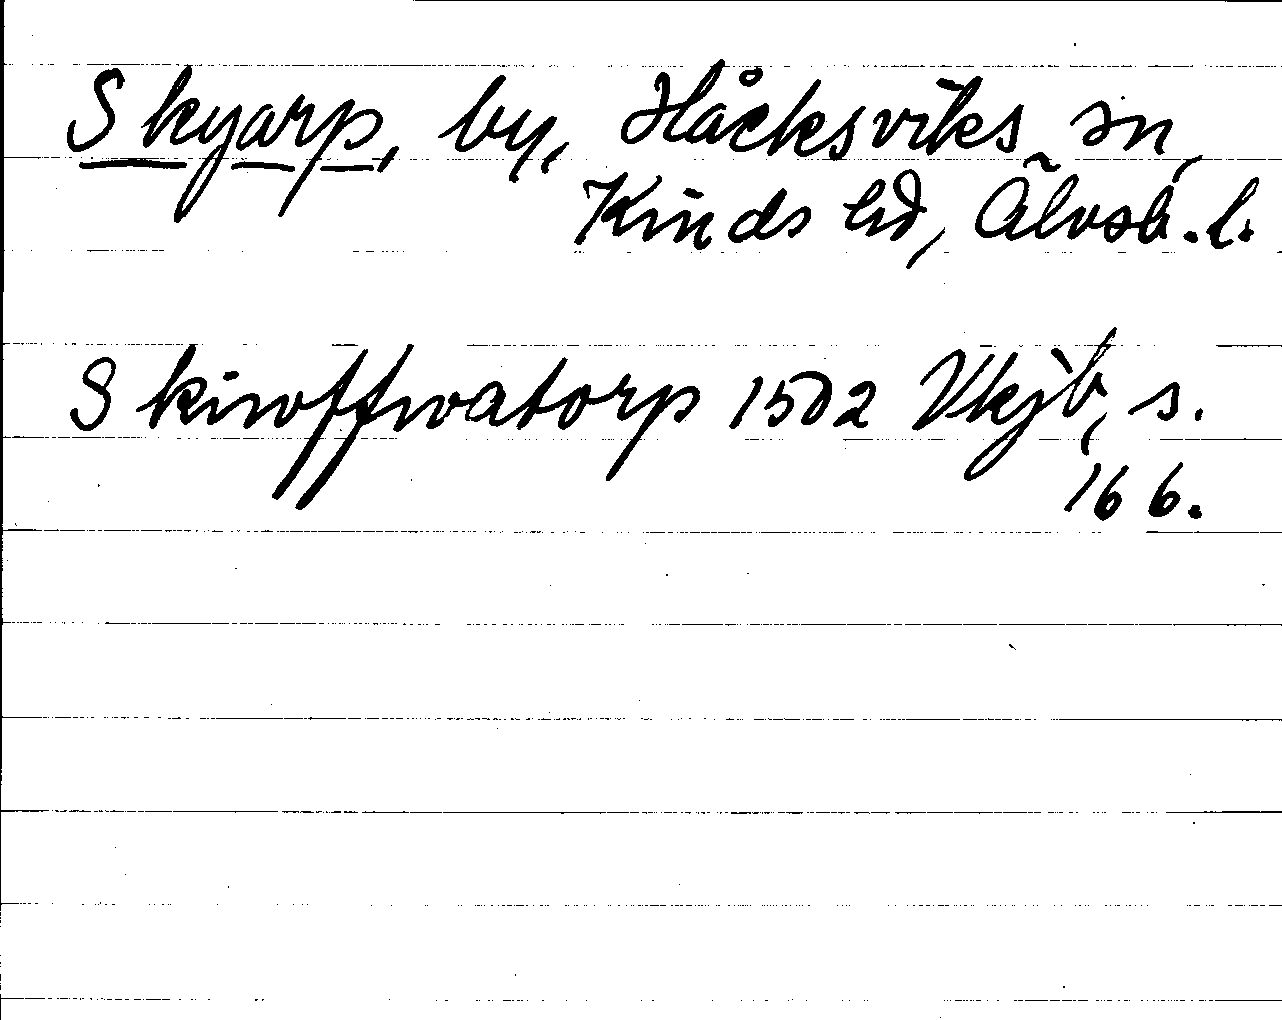 Skyarp, by, Håcksviks sn,
Kinds hd, Älvsb. l.
Skiwffwatorp 1502 Vkjb, s.
166.